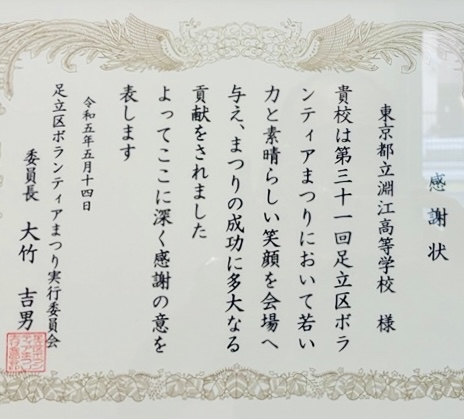 感謝状
東京都立淵江高等学校　様
貴校は第三十一回足立区ボラ
ンティアまつりにおいて若い
力と素晴らしい笑顔を会場へ
与え、まつりの成功に多大なる
貢献をされました
よってここに深く感謝の意を
表します
令和五年五月十四日
足立区ボランティアまつり実行委員会
委員長　大竹　吉男